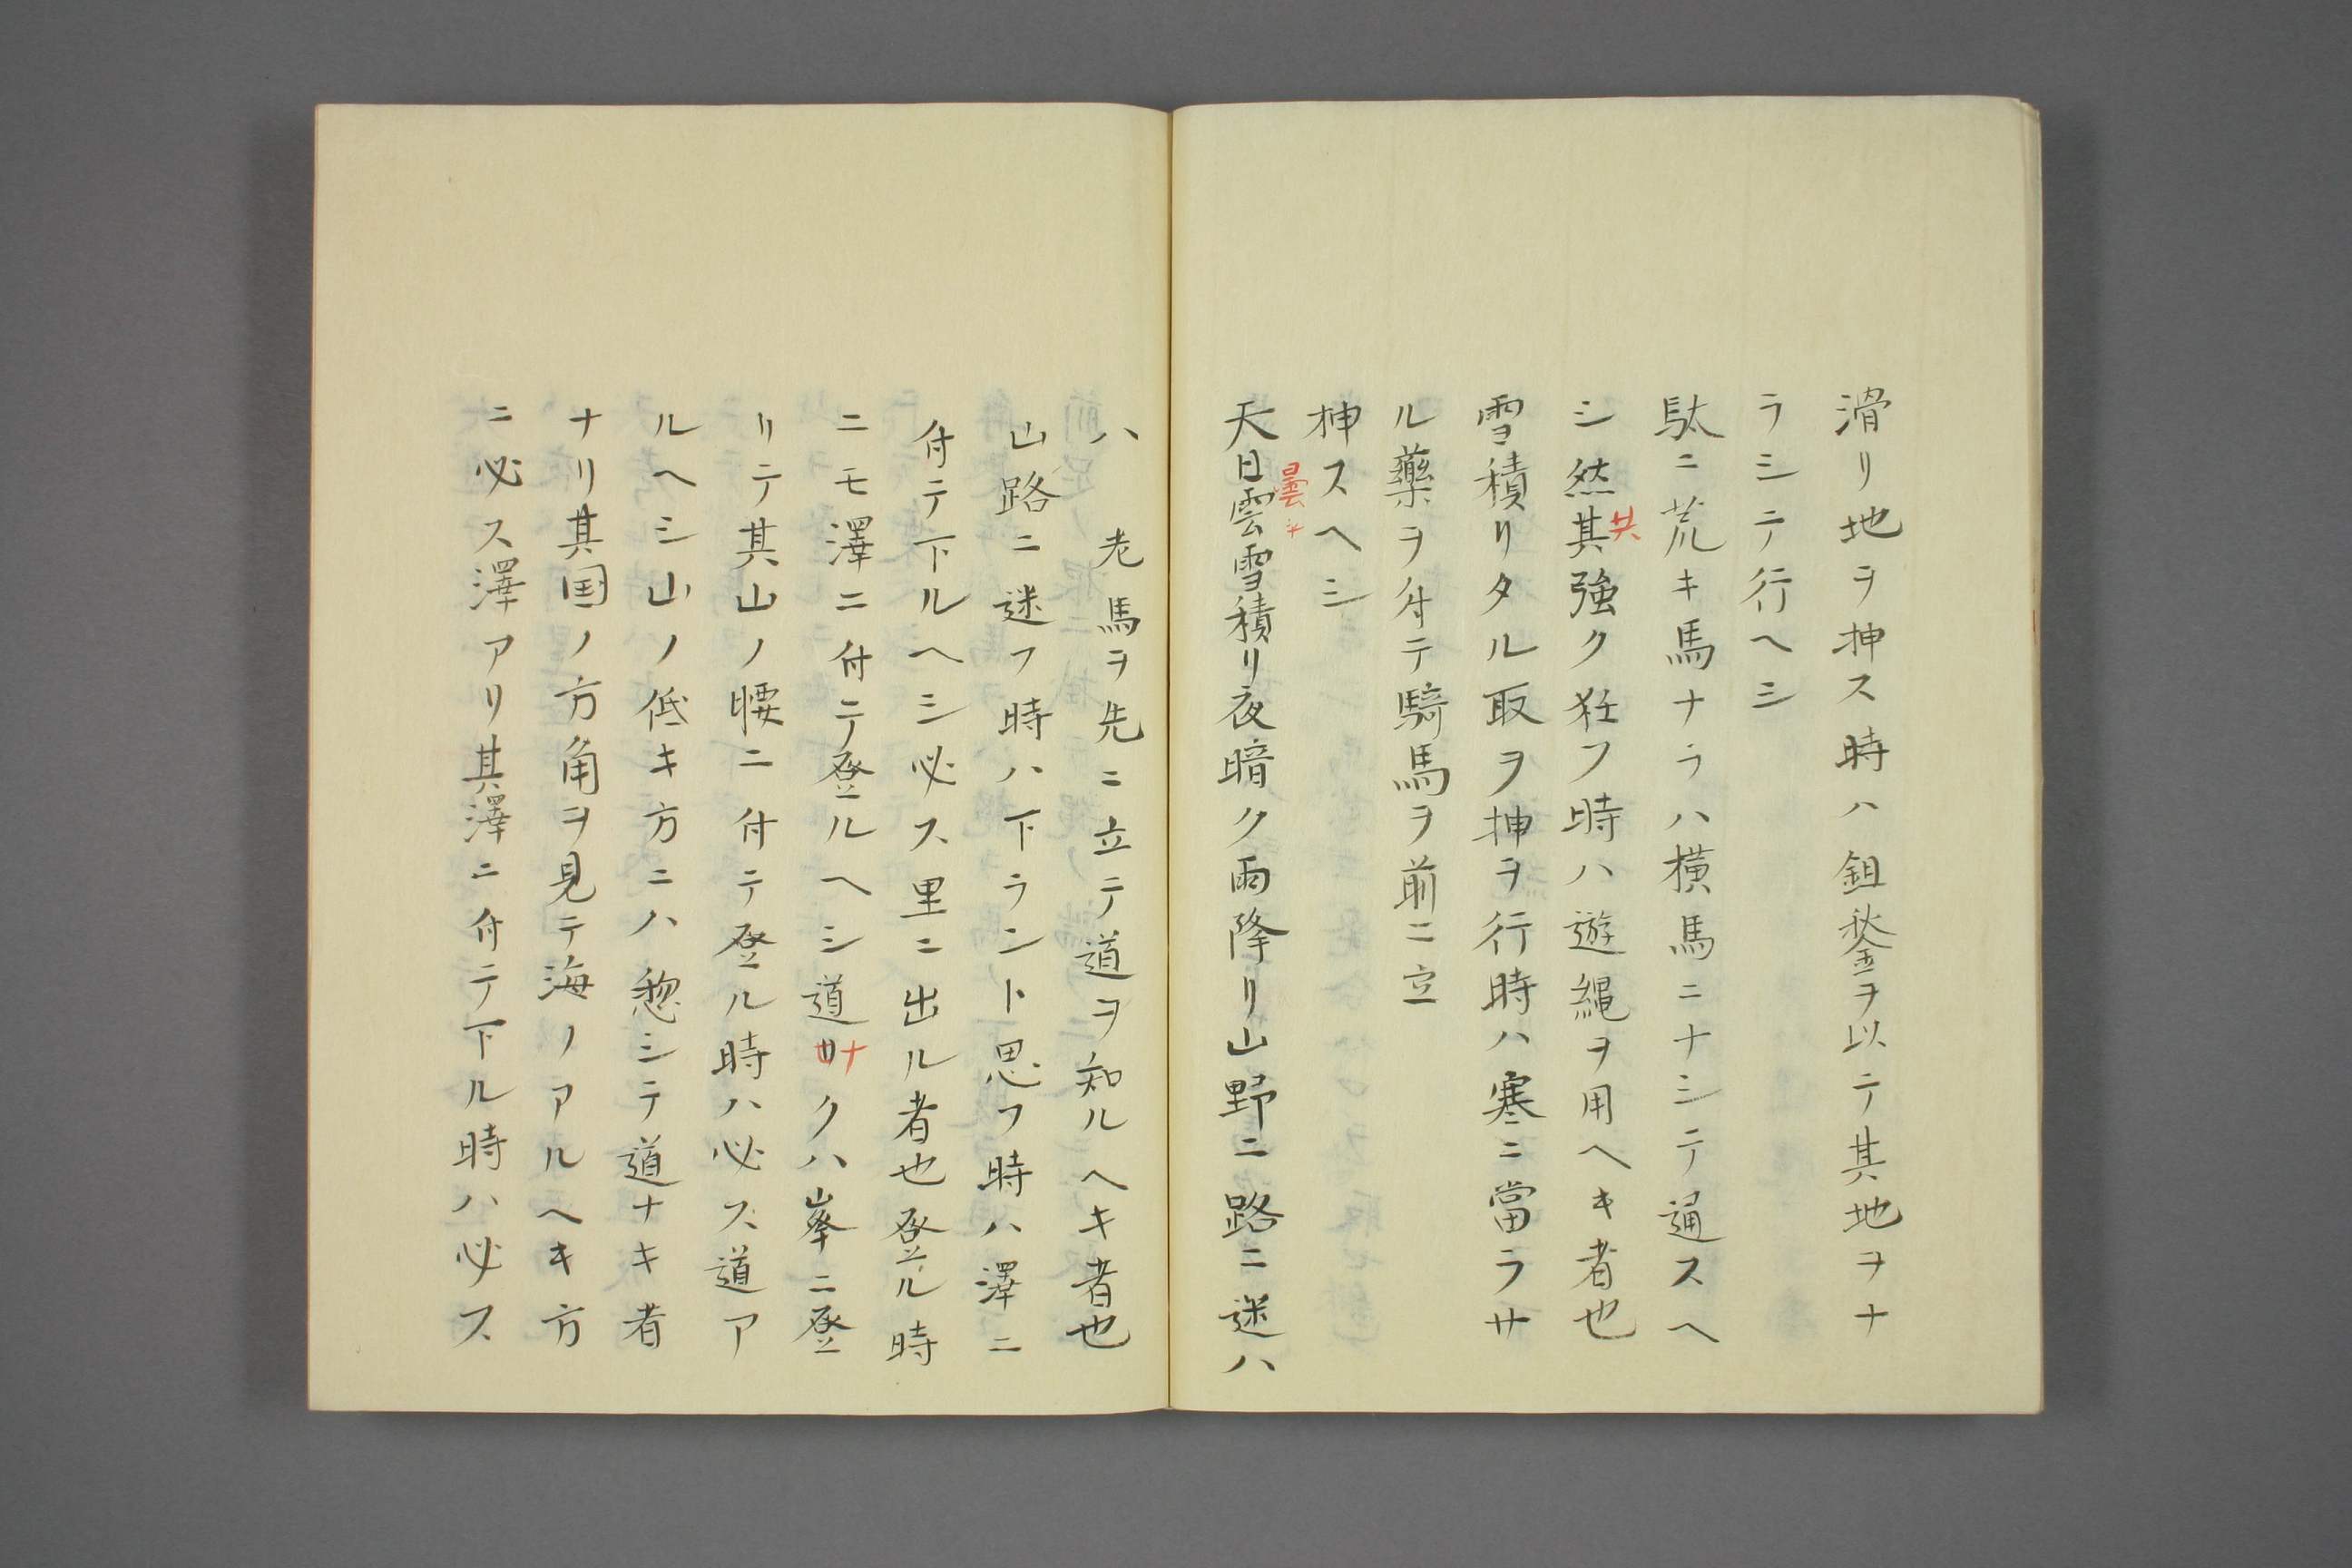 滑リ地ヲ押ス時ハ鉏鍫ヲ以テ其地ヲナ
ラシテ行ヘシ
駄ニ荒キ馬ナラハ横馬ニナシテ通スヘ
シ然其強ク狂フ時ハ遊縄ヲ用ヘキ者也
共
雪積リタル取ヲ押ヲ行時ハ寒ニ當ラサ
ル藥ヲ付テ騎馬ヲ前ニ立
押スヘシ
曇
天日雲雪積リ夜暗ク雨降リ山野ニ路ニ迷ハ
ハ 老馬ヲ先ニ立テ道ヲ知ルヘキ者也
山路ニ迷フ時ハ下ラント思フ時ハ澤ニ
付テ下ルヘシ必ス里ニ出ル者也登ル時
ニモ澤ニ付テ登ルヘシ道リクハ峯ニ登
ナ
リテ其山ノ腰ニ付テ登ル時ハ必ス道ア
ルヘシ山ノ低キ方ニハ惣シテ道ナキ者
ナリ其国ノ方角ヲ見テ海ノアルヘキ方
ニ必ス澤アリ其澤ニ付テ下ル時ハ必ス